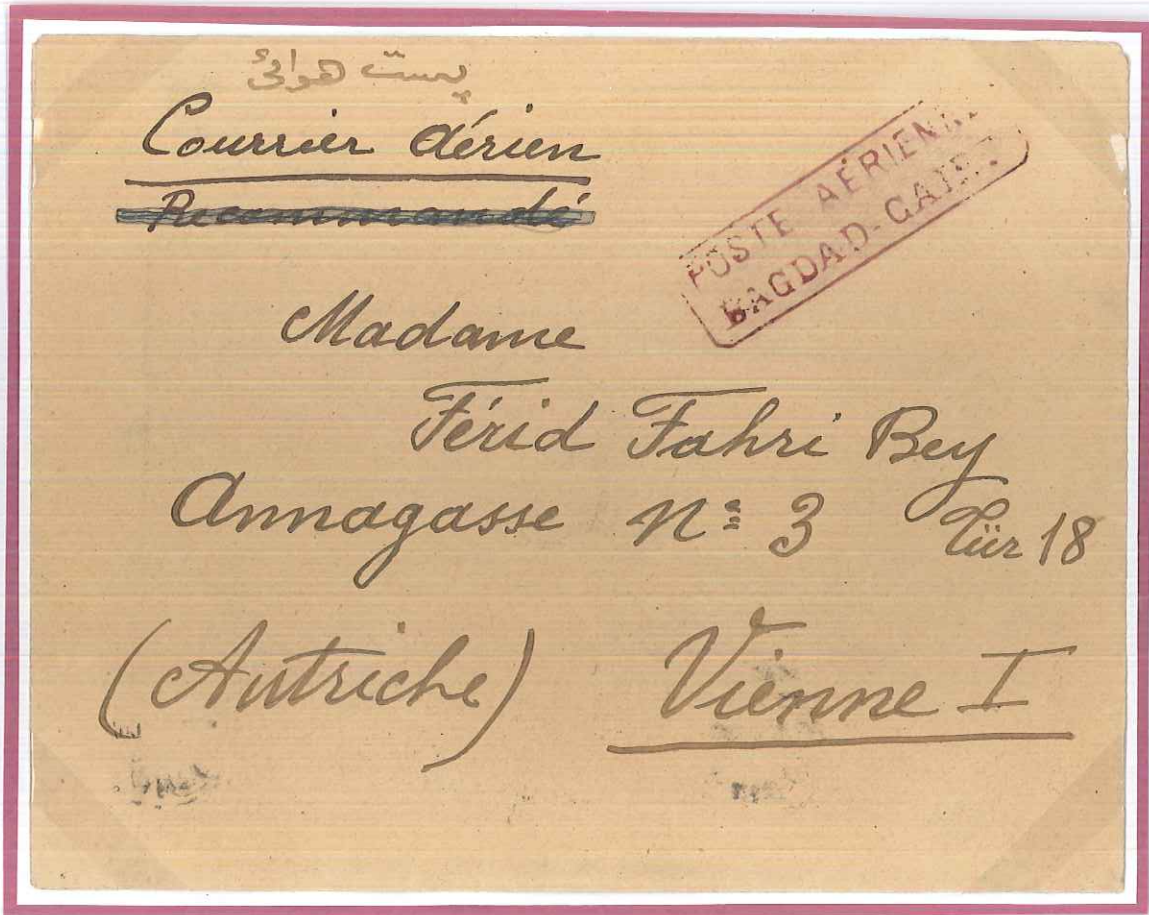 پست هوائی
Courrier Aérien
Recommandé
POSTE AÉRIENNE
BAGDAD-CAIRE
Madame
Férid Fahri Bey
Annagasse No 3 Tür 18
(Autriche) Vienne I